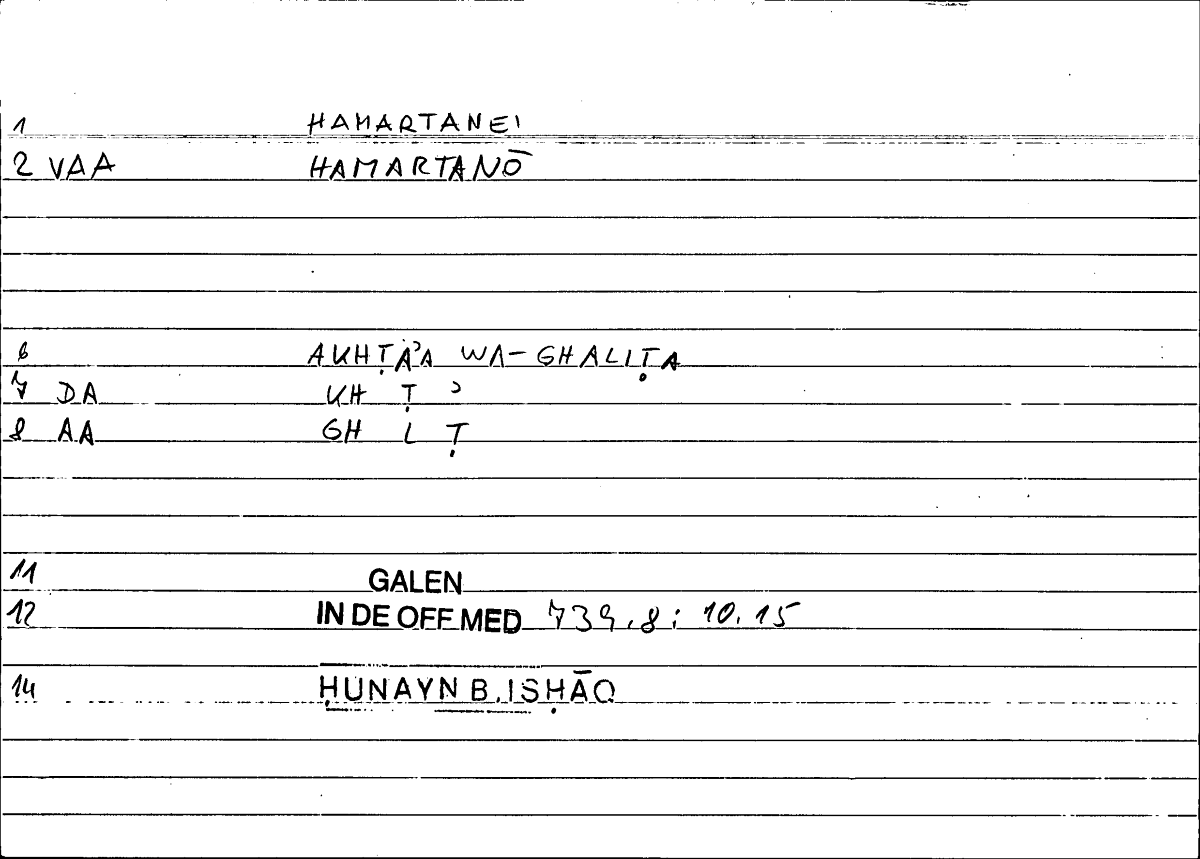 1 HAMARTANEI
2 VAA HAMARTANŌ
6 AKHṬAʾA WA-GHALIṬA
7 DA KH Ṭ ʾ
8 AA GH L Ṭ
11 GALEN
12 IN DE OFF MED 739.8: 10.15
14 ḤUNAYN B. ISḤĀQ